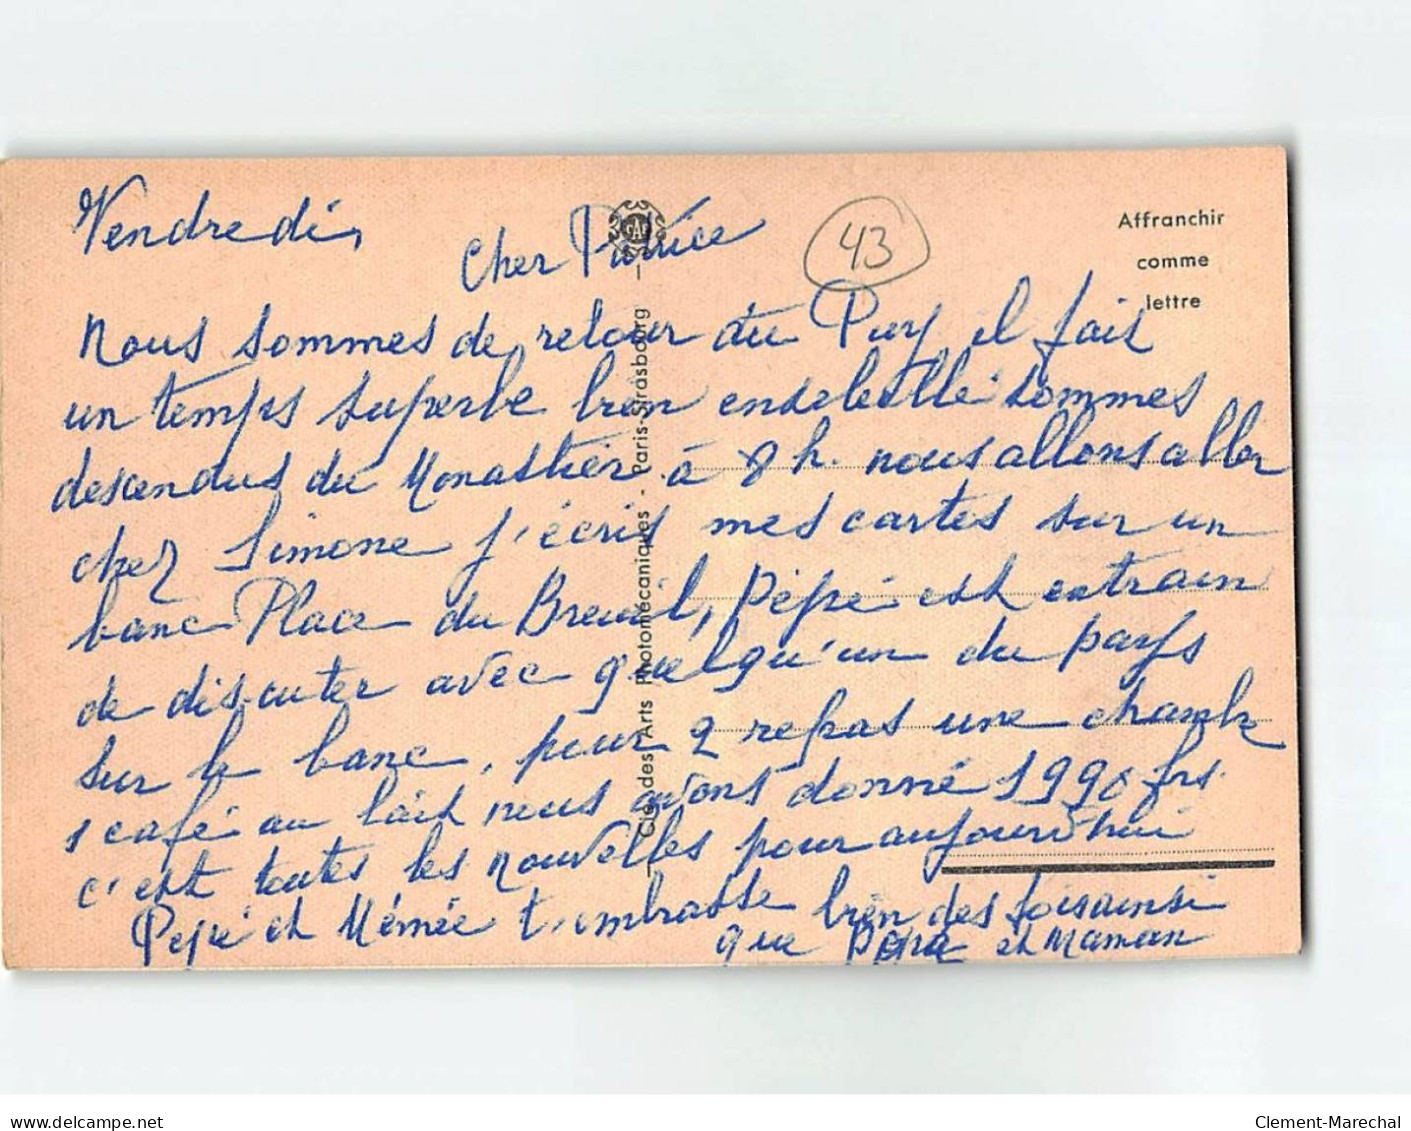 Vendredi,
Cher Patrice
43
Affranchir
comme
lettre
Nous sommes de retour du Puy il fait
un temps superbe bien ensoleillé sommes
descendus du Monastière à 8 h. nous allons aller
chez Simone j'écris mes cartes sur un
banc Place du Breuil, Pépé est entrain
de discuter avec quelqu'un du pays
sur le banc, pour 2 repas une chambre
1 café au lait nous avons donné 1990 frs.
c'est toutes les nouvelles pour aujourd'hui
Pépé et Mémée t'embrasse bien des fois ainsi
que Papa et Maman
Cie des Arts Photomécaniques - Paris-Strasbourg
CAP
delcampe.net
Clement-Marechal